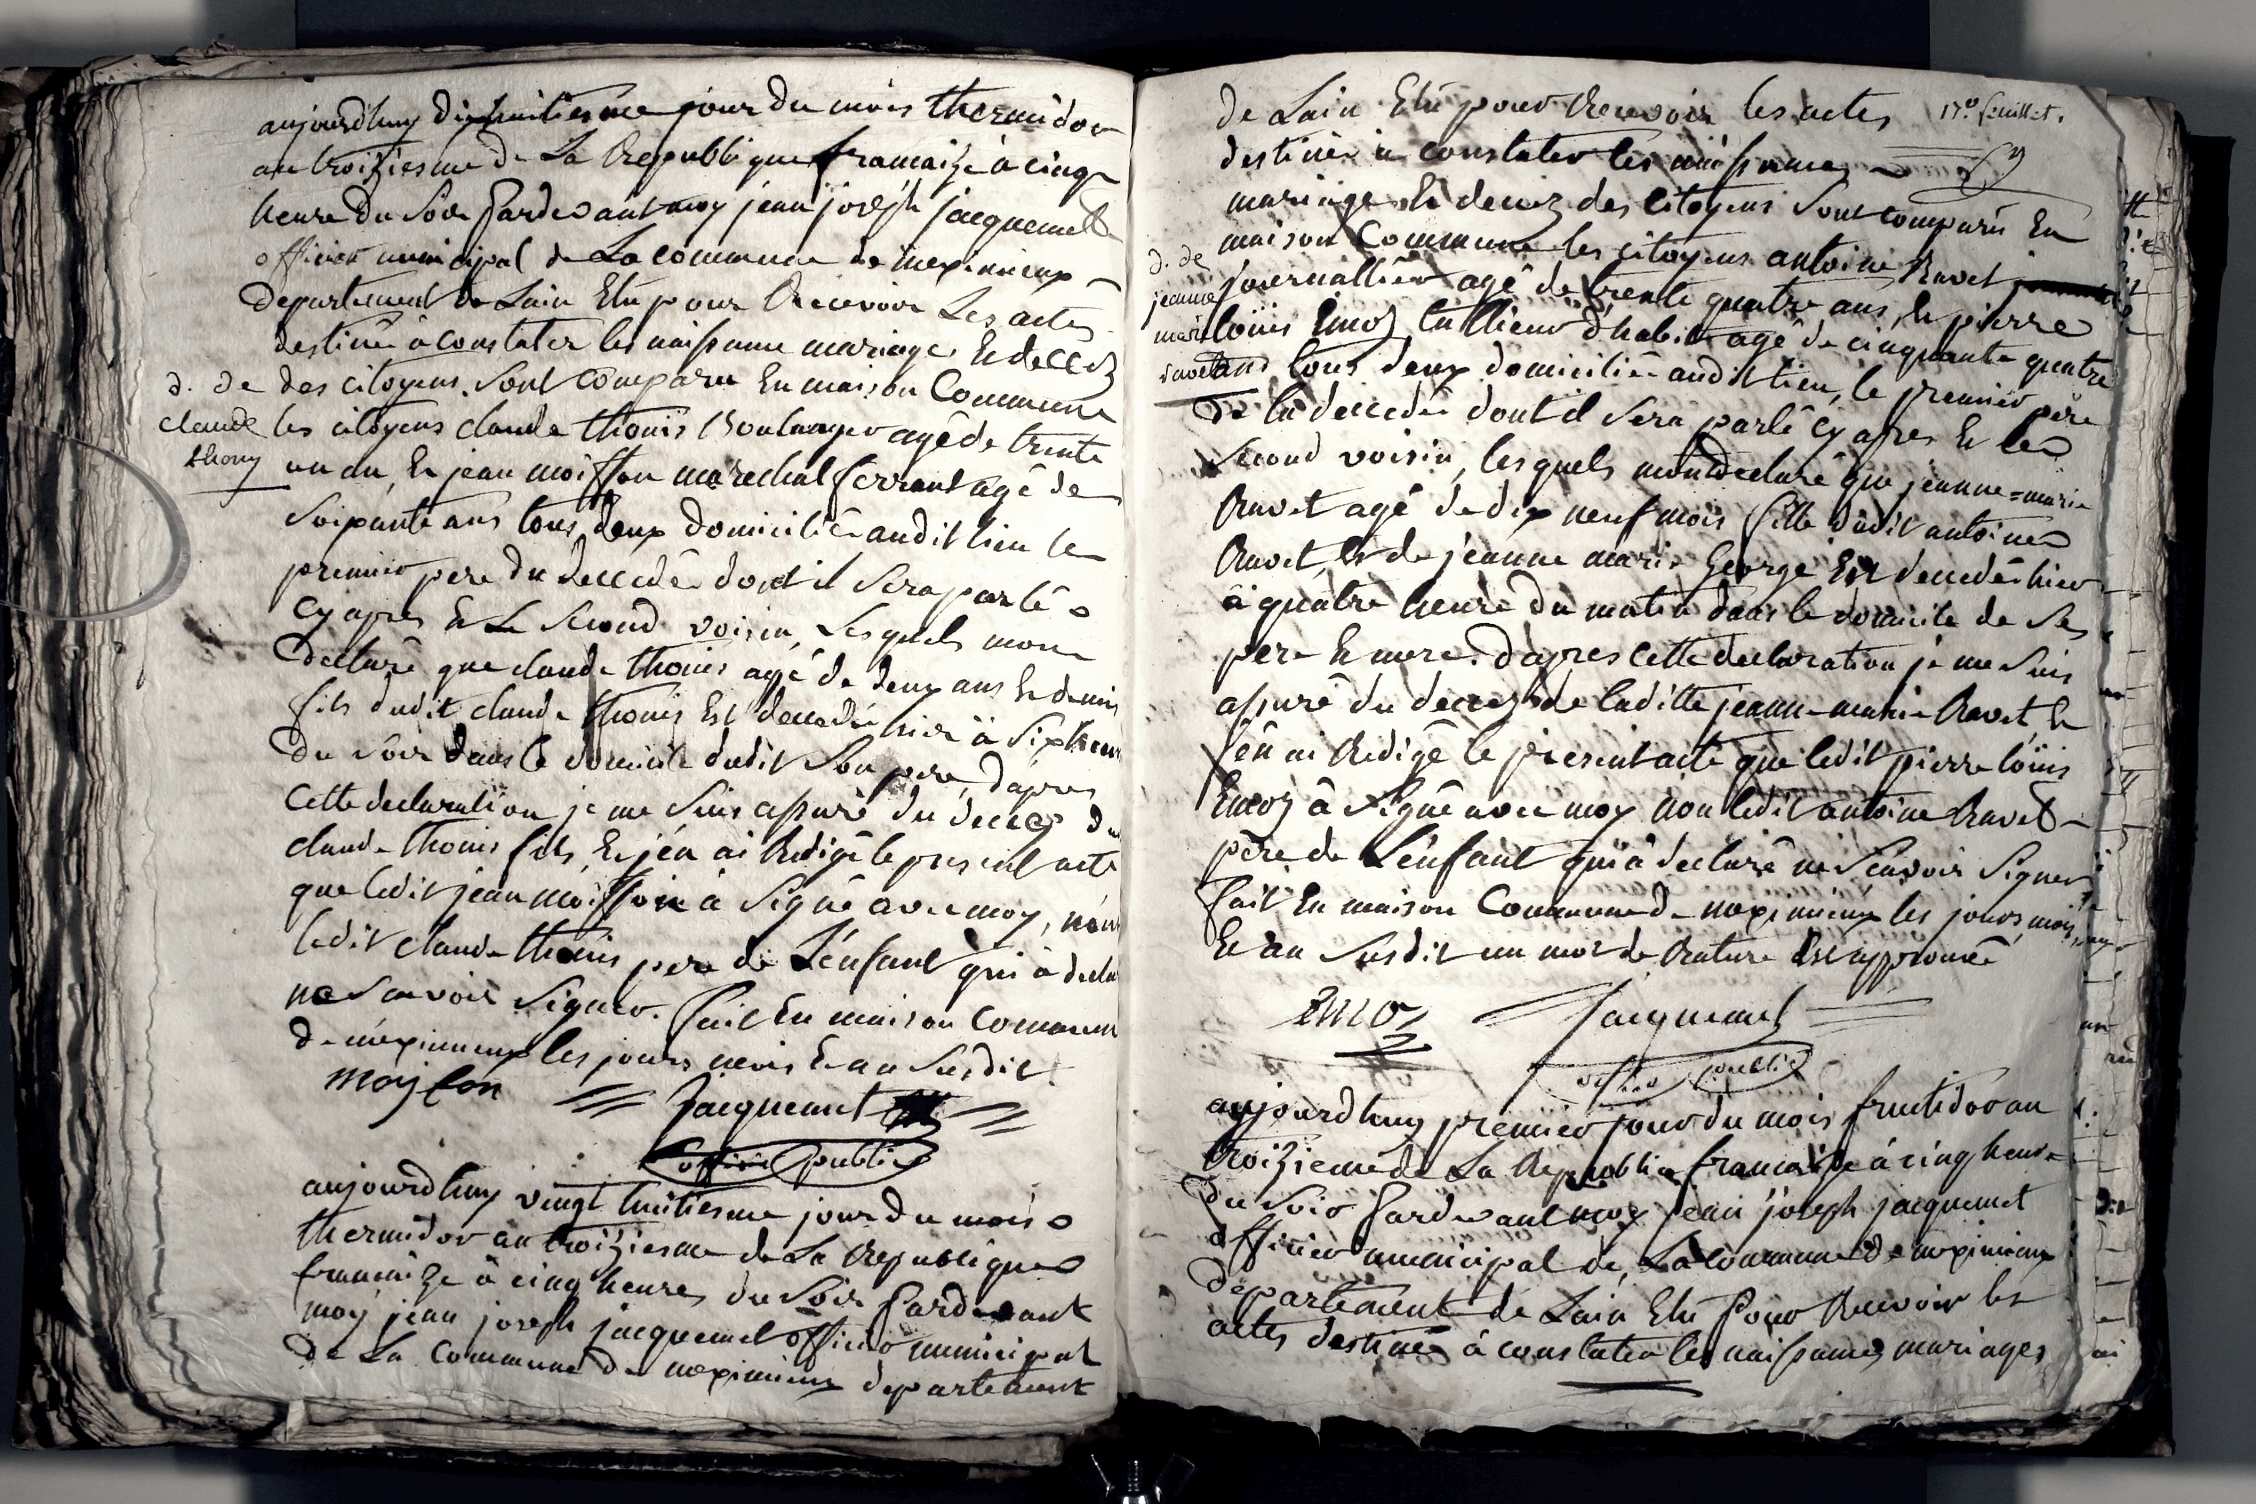 aujourdhuy dixhuitiesme jour du mois thermidor
an troiziesme de La Republique francaize à cinq
heure du Soir Pardevant moy jean joseph jacquemet
officier municipal de La commune de mexinieux
departement de Lain Elu pour Recevoir Les actes
destiné à constater les naissance mariages Et deccez
des citoyens. Sont Comparu En maison Commune
d. de
claude
thony
les citoyens claude thonis Boulanger agé de trente
un an, Et jean moisson marechal ferrant agé de
Soixante ans tous deux domicilié audit lieu le
premier pere du deccedé dont il Sera parlé
Cy apres Et Le Second voisin, Lesquels mont
declaré que claude thonis agé de deux ans Et demis
fils dudit claude thonis Est deccedé hier à Six heure
du soir dans le domicile dudit Son pere, dapres
Cette declaration je me Suis assuré du deccez du
claude thonis fils, Et jén ai Redigé le present acte
que ledit jean moisson à Signé avec moy, non
ledit claude thonis pere de L'énfant qui à declaré
ne Scavoir Signer. fait En maison Commune
de méximieux les jours mois Et an Susdit
moyson Jacquemet
officier public
aujourdhuy vingt huitiesme jour du mois
thermidor an troiziesme de La Republique
francaize à cinq heures du Soir Pardevant
moy jean joseph jacquemet officier municipal
de La Commune de mexinieux departement
17e feuillet.
de Lain Elu pour Recevoir les actes
destinés à constater les naissances
mariage Et deccez des Citoyens Sont comparu En
maison Commune les citoyens antoine Ravet
d. de
jeanne
marie
ravet
journallier agé de trente quatre ans, Et pierre
loüis Emoz tallieur d'habit agé de cinquante quatre
ans tous deux domicilié audit lieu, le premier père
de la deccedée dont il Sera parlé Cy apres Et le
Second voisin, lesquels mont declaré que jeanne=marie
Ravet agé de dix neuf mois fille dudit antoine
Ravet, Et de jeanne marie George Est deccedée hier
à quatre heure du matin dans le domicile de Ses
pere Et mere. dapres cette declaration je me Suis
assuré du deccez de laditte jeanne-marie Ravet, Et
j'én ai Redigé le present acte que ledit pierre loüis
Emoz à Signé avec moy non ledit antoine Ravet
père de L'énfant qui à declaré ne Scavoir Signer
fait En maison Commune de meximieux les jours, mois,
Et an Susdit un mot de Rature Est approuvé
Emoz Jacquemet
officier public
aujourdhuy premier jour du mois fructidor an
troizieme de La Republique francaize à cinq heure
du Soir Pardevant moy jean joseph jacquemet
officier municipal de La commune de meximieux
departement de Lain Elu Pour Recevoir les
actes destinés à constater les naissances mariages